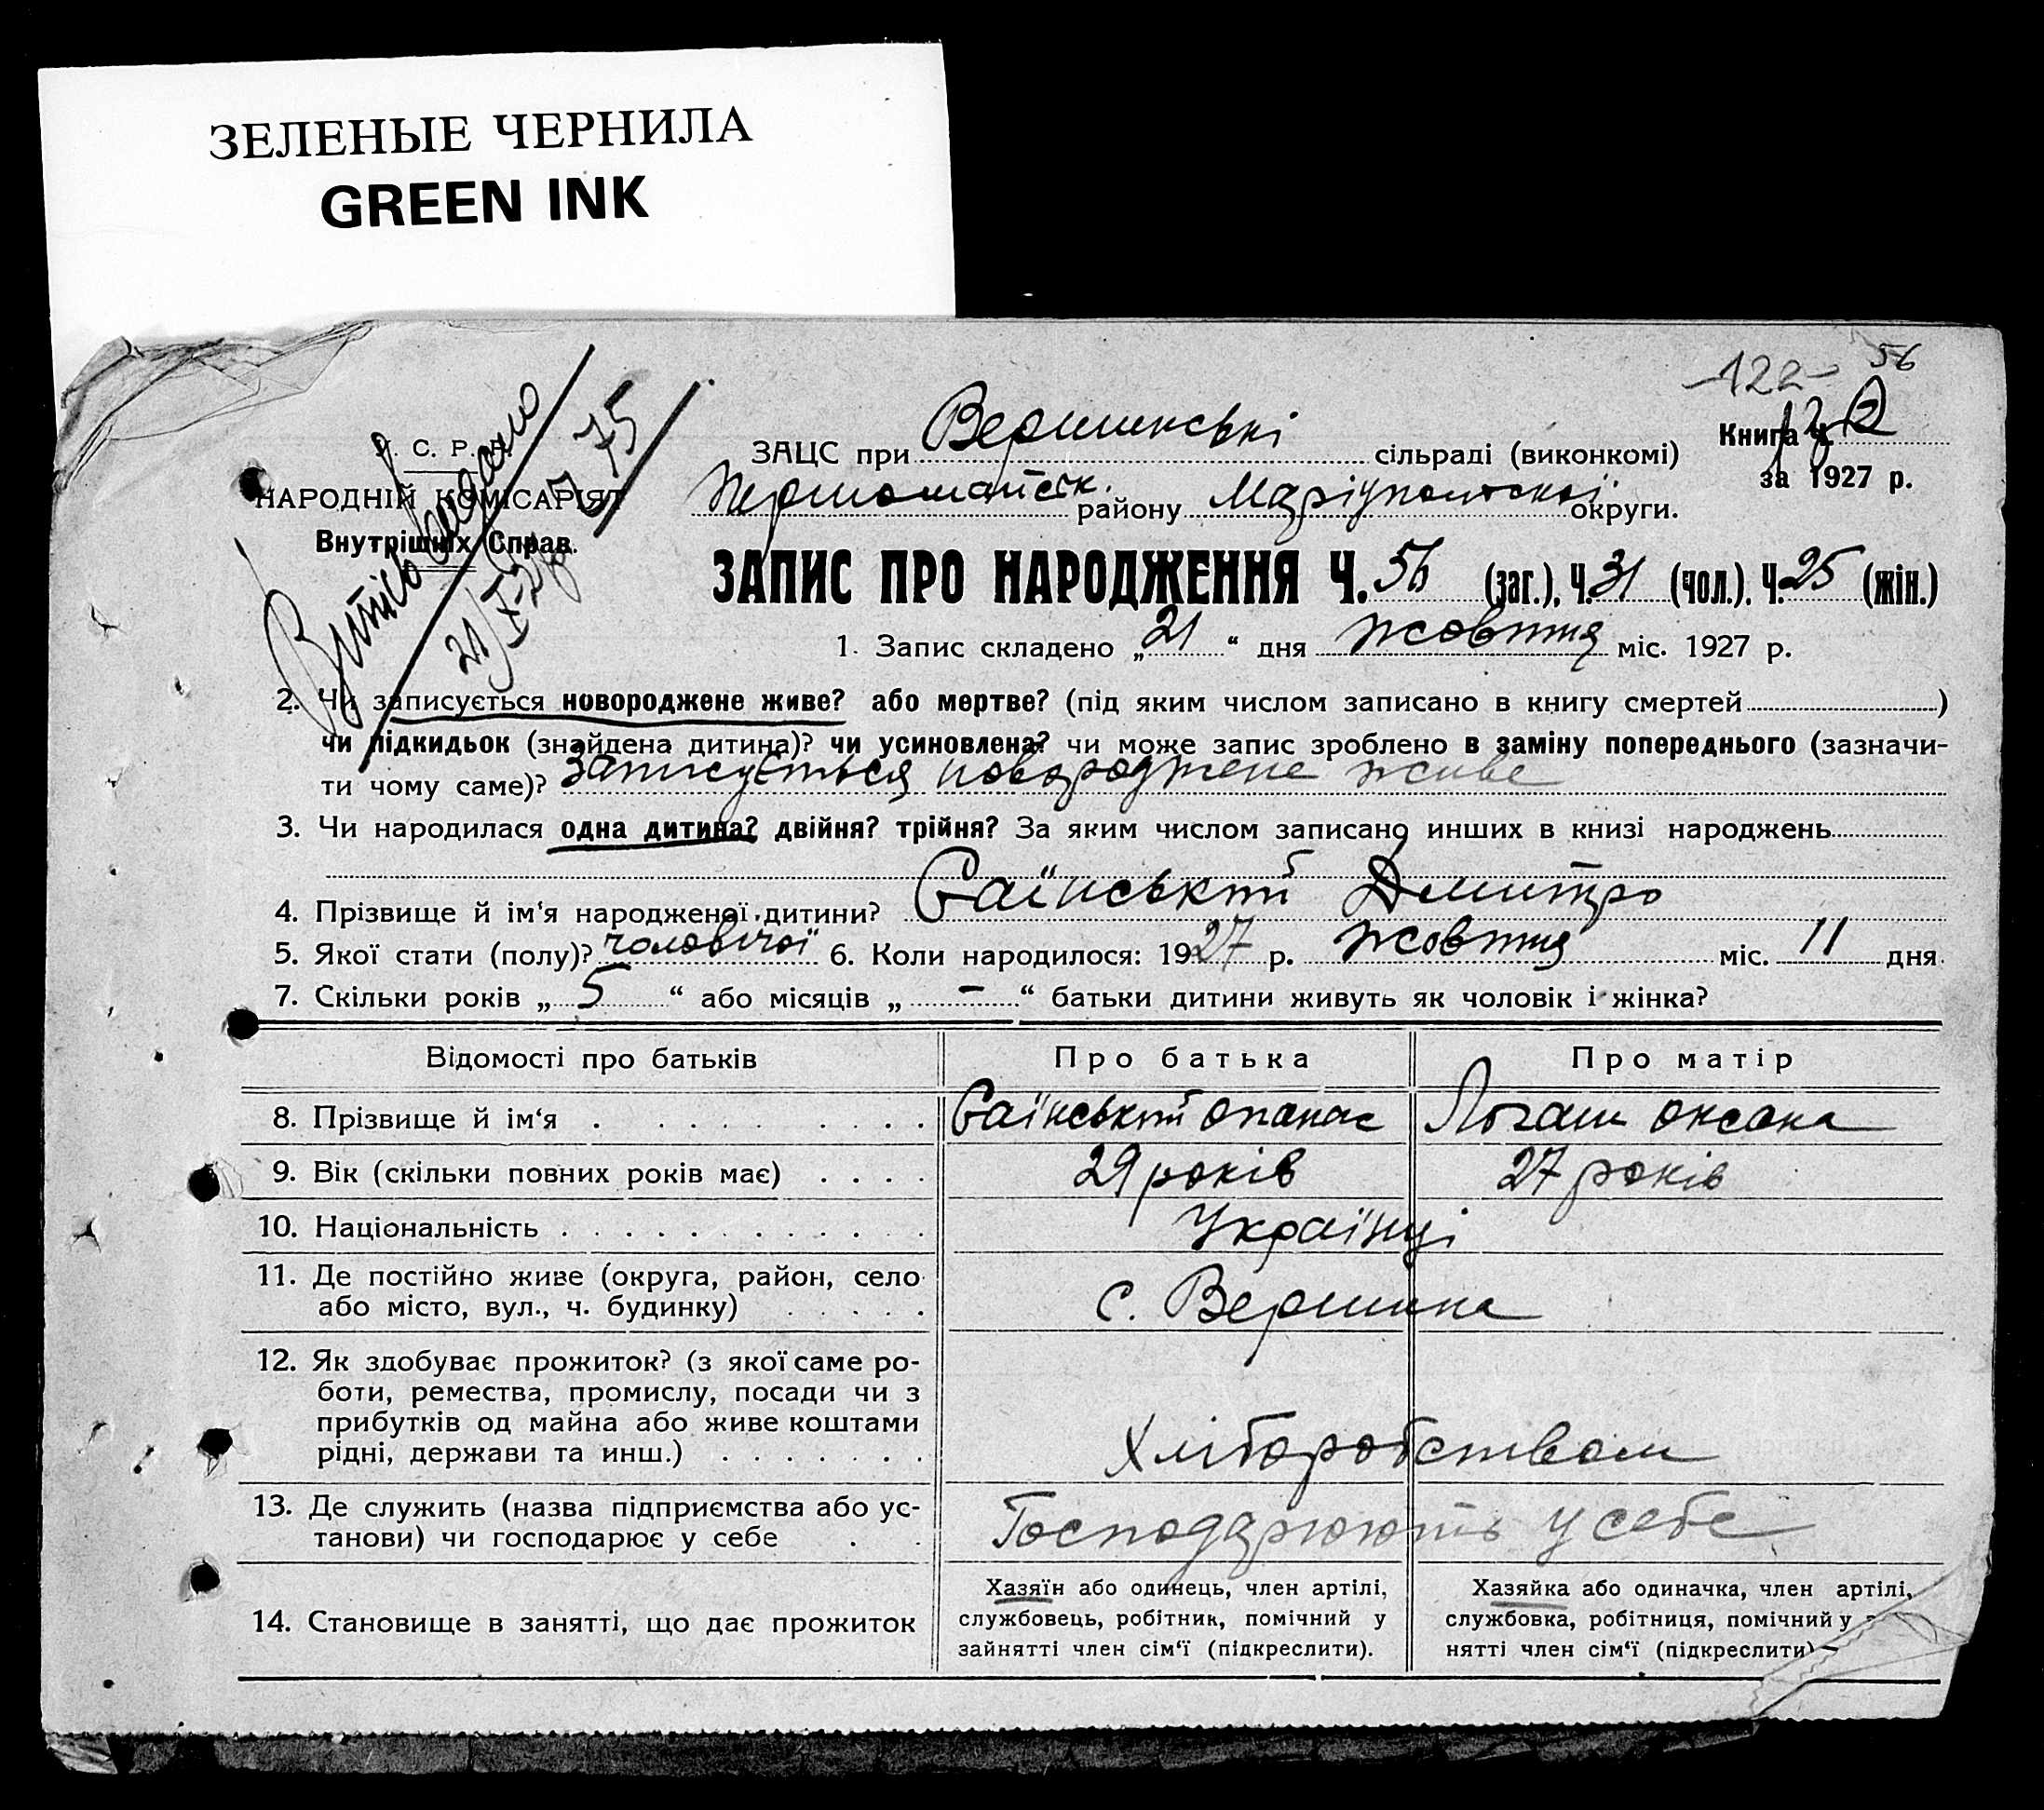 ЗЕЛЕНЫЕ ЧЕРНИЛА
GREEN INK
-122- 56
У. С. Р. Р.
НАРОДНІЙ КОМІСАРІЯТ
Внутрішніх Справ.
Витяг видано
21/X-27р
ЗАЦС при Вершинські сільраді (виконкомі)
Книга ч.
за 1927 р.
Першомайськ. району Маріупольської округи.
ЗАПИС ПРО НАРОДЖЕННЯ Ч. 56 (заг.), Ч. 31 (чол.), Ч. 25 (жін.)
1. Запис складено „21“ дня жовтня міс. 1927 р.
2. Чи записується новороджене живе? або мертве? (під яким числом записано в книгу смертей)
чи підкидьок (знайдена дитина)? чи усиновлена? чи може запис зроблено в заміну попереднього (зазначи-
ти чому саме)? Записується новороджене живе
3. Чи народилася одна дитина? двійня? трійня? За яким числом записано инших в книзі народжень
4. Прізвище й ім‘я народженої дитини? Саїнський Дмитро
5. Якої стати (полу)? чоловічої 6. Коли народилося: 1927 р. жовтня міс. 11 дня.
7. Скільки років „5“ або місяців „-“ батьки дитини живуть як чоловік і жінка?
Відомості про батьків Про батька Про матір
8. Прізвище й ім‘я Саїнський Опанас Логаш Оксана
9. Вік (скільки повних років має) 29 років 27 років
10. Національність Українці
11. Де постійно живе (округа, район, село
або місто, вул., ч. будинку) с. Вершина
12. Як здобуває прожиток? (з якої саме ро-
боти, ремества, промислу, посади чи з
прибутків од майна або живе коштами
рідні, держави та инш.) Хліборобством
13. Де служить (назва підприємства або ус-
танови) чи господарює у себе Господарюють у себе
14. Становище в занятті, що дає прожиток
Хазяїн або одинець, член артілі,
службовець, робітник, помічний у
зайнятті член сім‘ї (підкреслити).
Хазяйка або одиначка, член артілі,
службовка, робітниця, помічний у
нятті член сім‘ї (підкреслити)